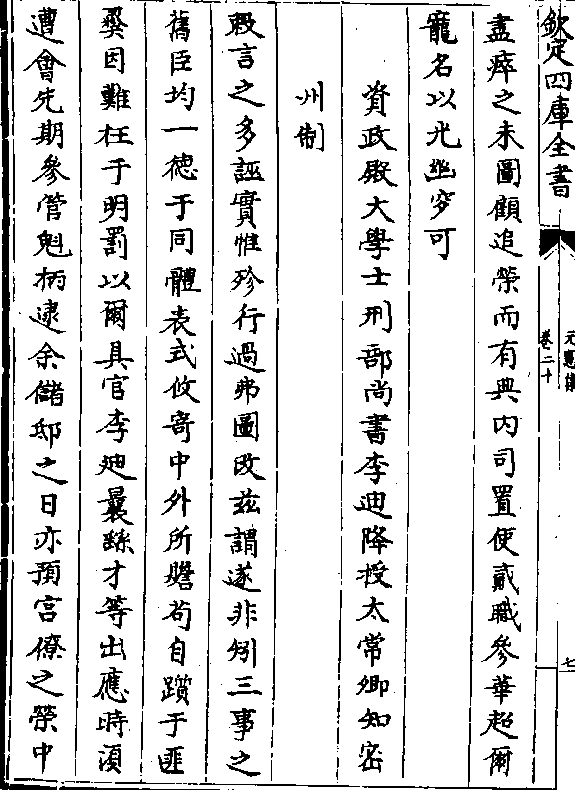 欽定四庫全書
元憲集
卷二十
七
盡瘁之未圖顧追榮而有典内司置使貳職參華超爾
寵名以光幽穸可
資政殿大學士刑部尚書李迪降授太常卿知密
州制
敕言之多誣實惟殄行過弗圖改茲謂遂非矧三事之
舊臣均一德于同體表式攸寄中外所瞻苟自躓于匪
彛因難枉于明罰以爾具官李迪曩繇才等出應時須
遭會先期參管魁柄逮余儲邸之日亦預宫僚之榮中